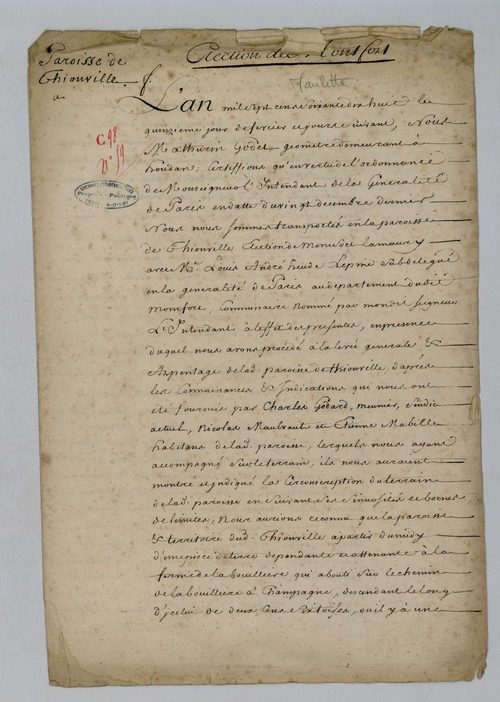 Paroisse de
Thionville
Election de Montfort
Maulette
C 98
N° 59
L'an mil sept cens soixante dix huit le
quinzieme jour de fevrier et jours suivant, Nous
Mathurin Godet geometre demeurant a
houdan; Certiffions qu'en vertu de l'ordonnance
de Monseigneur l'Intendant de la Generalité
de Paris en datte du vingt decembre dernier
Nous nous sommes transportés en la paroisse
de Thionville Election de Montfort lamaury
avec Mr. Louis André heude Lepine Subdelegué
en la generalité de Paris au departement dudit
montfort, Commissaire nommé par mondit seigneur
L'Intendant à l'effet des presentes, en presence
duquel nous avons procédé à la levée generale &
Arpentage de lad. paroisse de thionville d'après
les Connoissances & Indications qui nous ont
été fournies par Charles Godard, meunier, sindic
actuel, Nicolas Maubraut et Etienne Mabille
habitans de lad. paroisse, lesquels nous ayant
accompagné sur le terrain, ils nous auraient
montré et indiqué la Circonscription du terrain
de lad. paroisse en suivant ses sinuosités et bornes
de limites, Nous aurions reconnu que la paroisse
& territoire dud. Thionville a partir du midy
d'une piece de terre dependante et attenante à la
ferme de la bouillere qui abouti sur le chemin
de la bouillere à Champagne, descendant le long
d'icelui de deux cens toises, ou il y à une